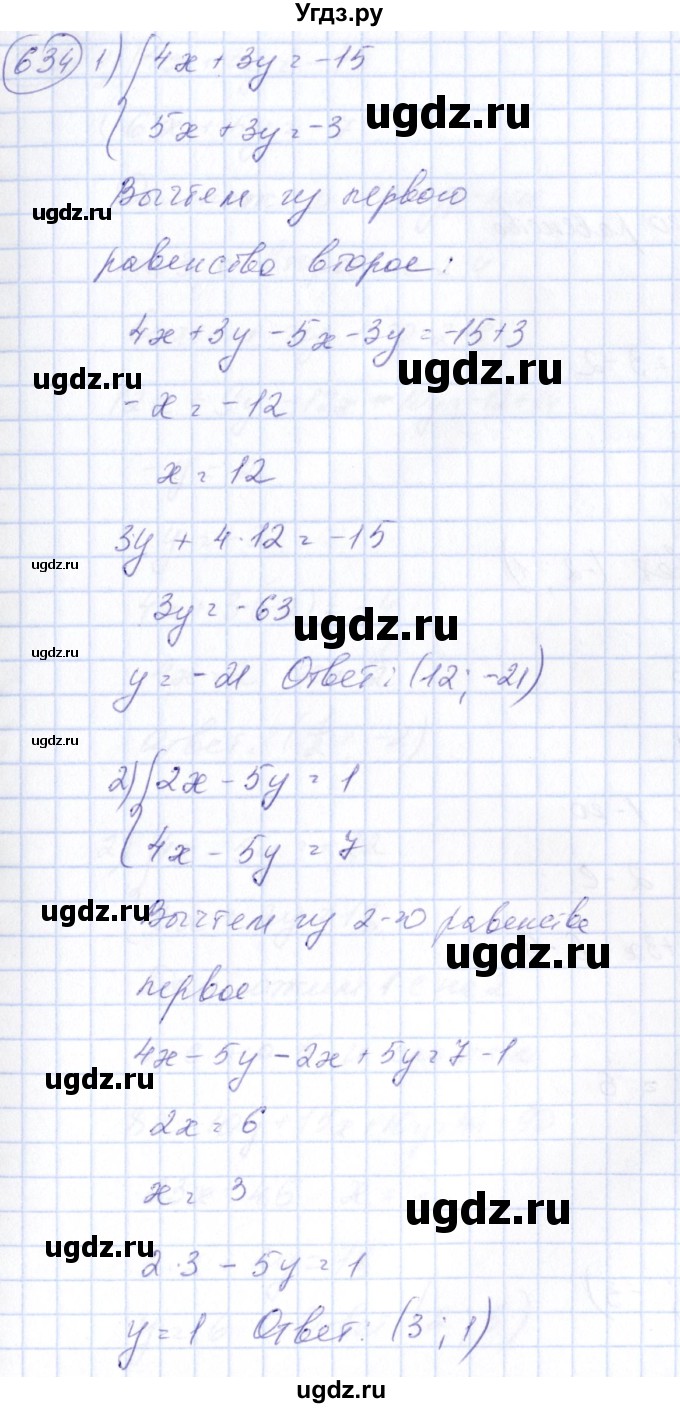 Угдз.ру
634 1) { 4x + 3y = -15
5x + 3y = -3
ugdz.ru
Вычтем из первого
ugdz.ru
равенства второе:
4x + 3y - 5x - 3y = -15+3
ugdz.ru
ugdz.ru
- x = -12
x = 12
3y + 4·12 = -15
ugdz.ru
3y = -63
ugdz.ru
ugdz.ru
y = -21 Ответ: (12; -21)
ugdz.ru
2) { 2x - 5y = 1
4x - 5y = 7
ugdz.ru
Вычтем из 2-го равенства
ugdz.ru
первое
4x - 5y - 2x + 5y = 7 - 1
ugdz.ru
2x = 6
x = 3
ugdz.ru
ugdz.ru
2·3 - 5y = 1
y = 1 Ответ: (3; 1)
ugdz.ru